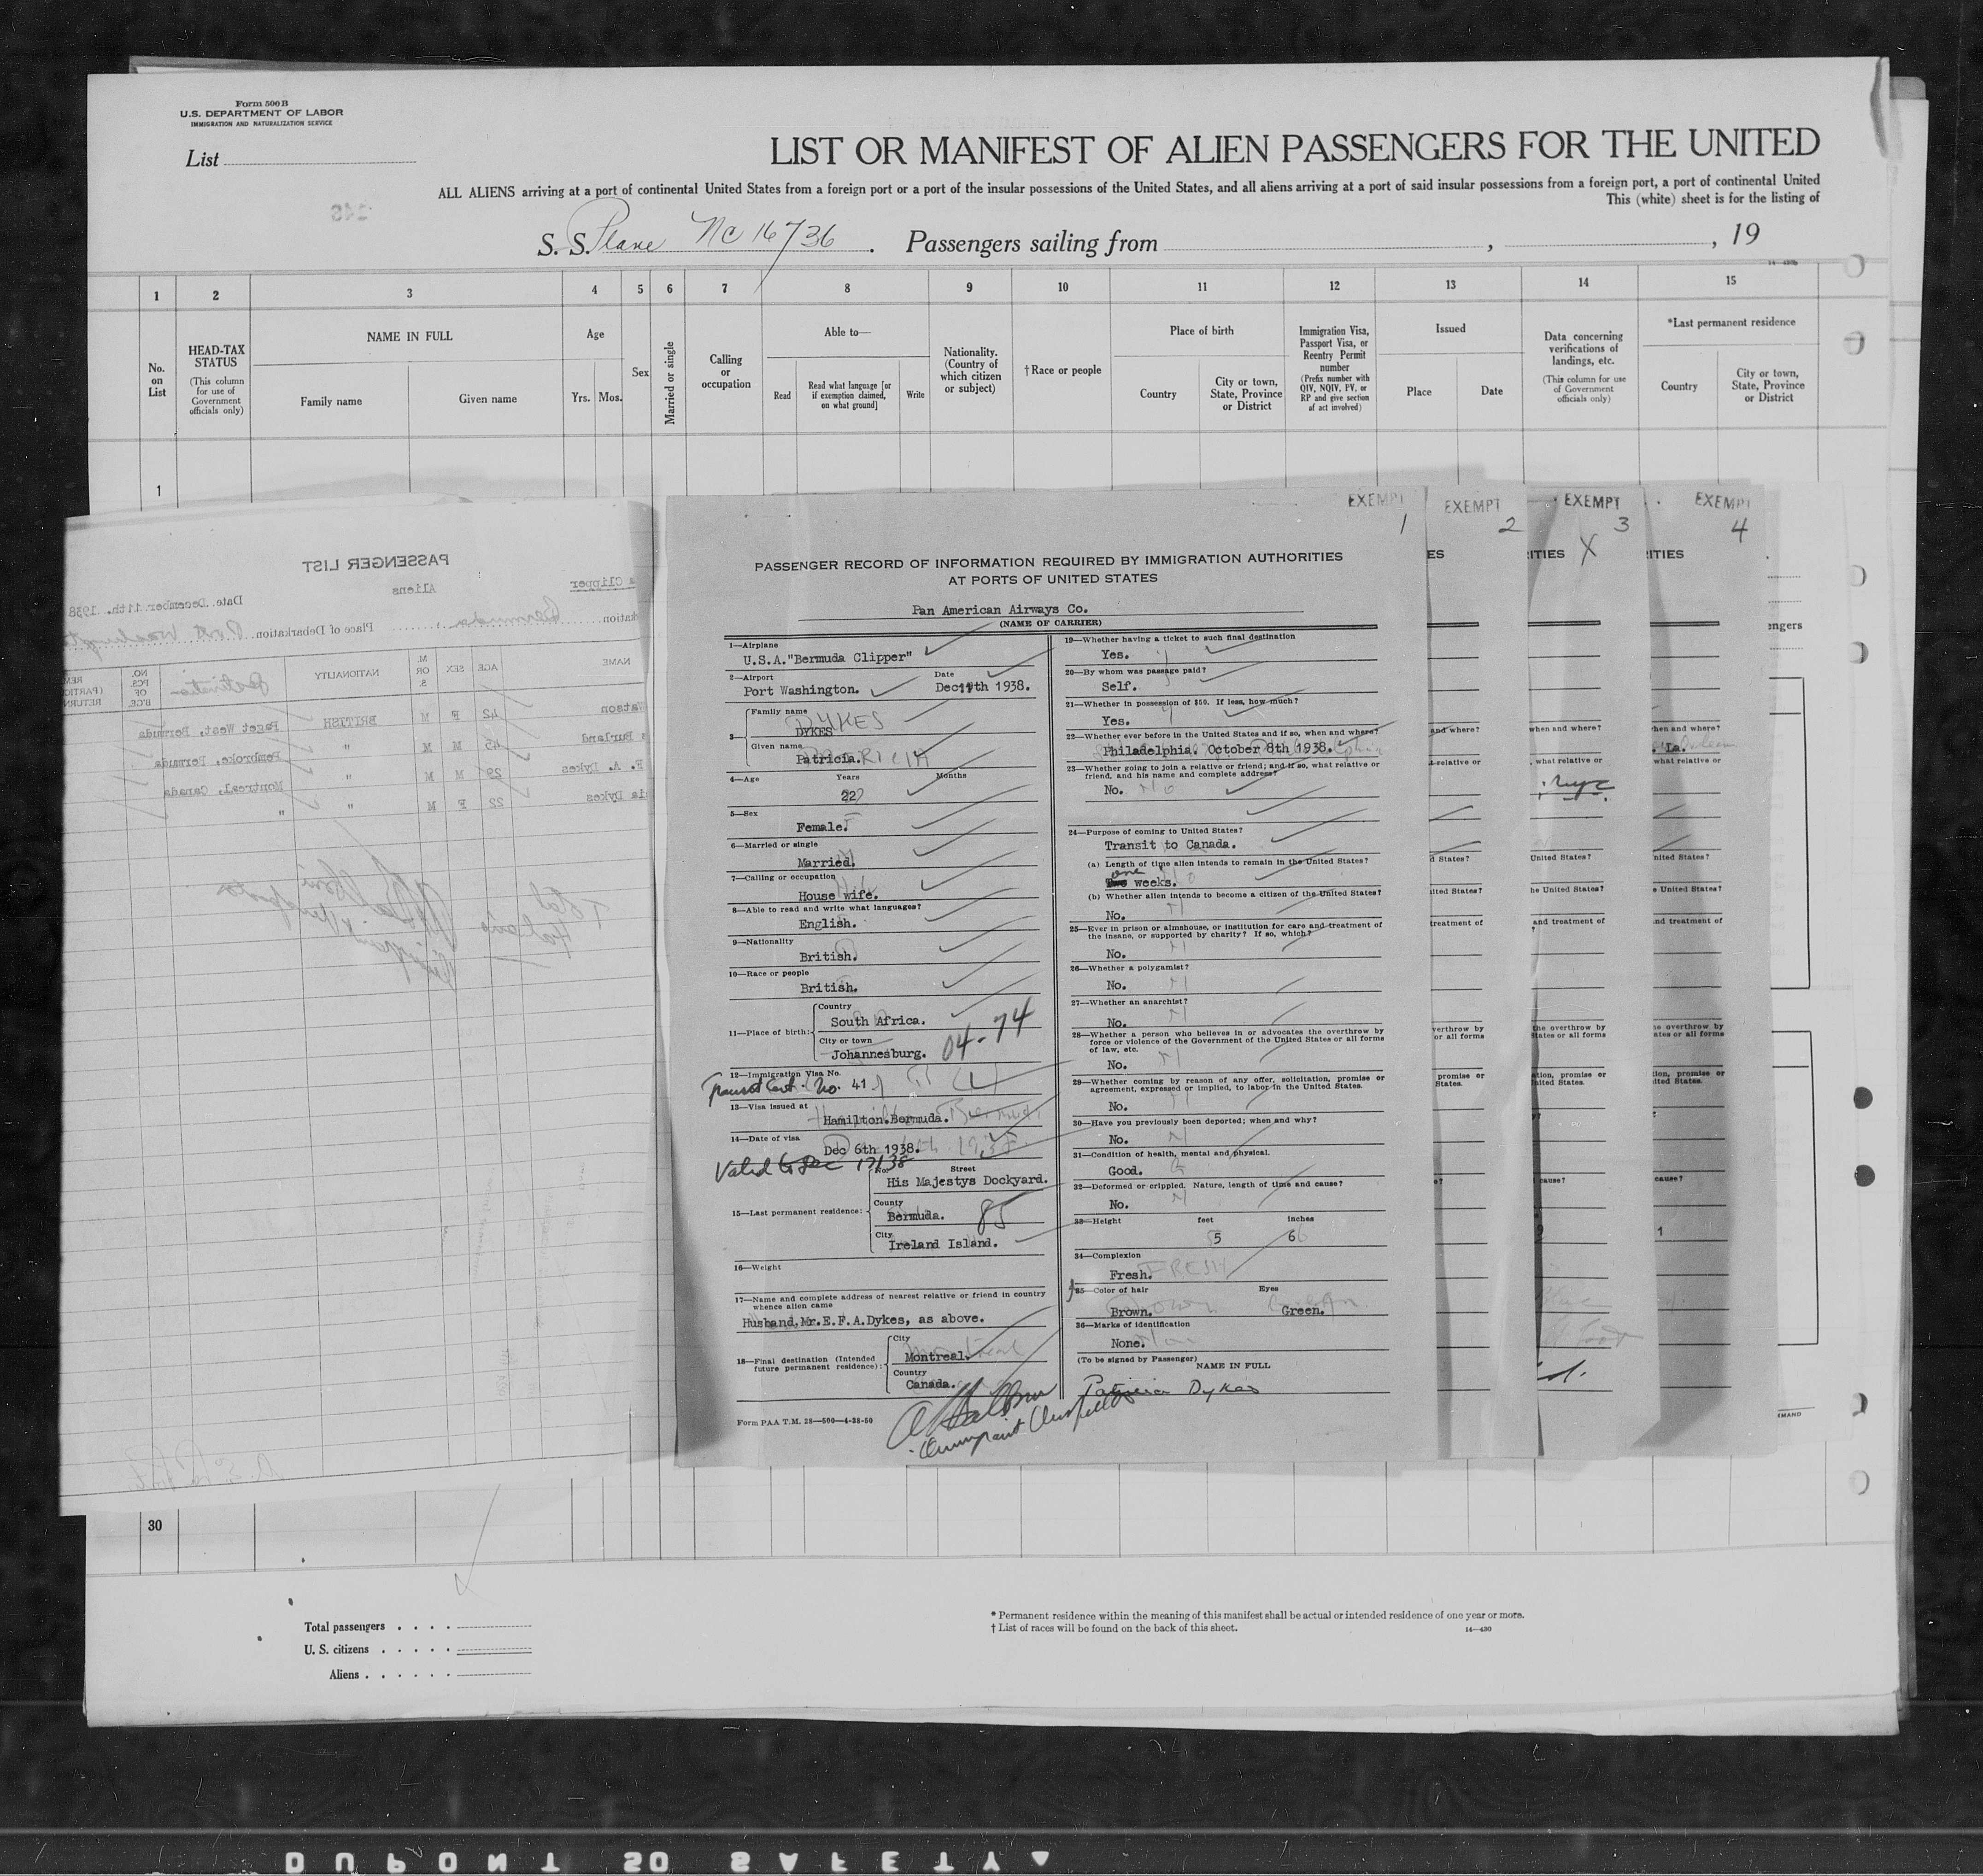 Form 500 B
U.S. DEPARTMENT OF LABOR
IMMIGRATION AND NATURALIZATION SERVICE
List
LIST OR MANIFEST OF ALIEN PASSENGERS FOR THE UNITED
ALL ALIENS arriving at a port of continental United States from a foreign port or a port of the insular possessions of the United States, and all aliens arriving at a port of said insular possessions from a foreign port, a port of continental United
This (white) sheet is for the listing of
S. S. Plane NC 16736. Passengers sailing from , , 19
1 2 3 4 5 6 7 8 9 10 11 12 13 14 15
No. on List
HEAD-TAX STATUS
(This column for use of Government officials only)
NAME IN FULL
Family name
Given name
Age
Yrs. Mos.
Sex
Married or single
Calling or occupation
Able to—
Read
Read what language [or if exemption claimed, on what ground]
Write
Nationality. (Country of which citizen or subject)
†Race or people
Place of birth
Country
City or town, State, Province or District
Immigration Visa, Passport Visa, or Reentry Permit number
(Prefix number with QIV, NQIV, PV, or RP and give section of act involved)
Issued
Place
Date
Data concerning verifications of landings, etc.
(This column for use of Government officials only)
*Last permanent residence
Country
City or town, State, Province or District
1
PASSENGER LIST
a Clipper
Aliens
Date December 11th. 1938
kation Bermuda
Place of Debarkation Port Washington
NAME
AGE
SEX
M. OR S.
NATIONALITY
Destination
NO. PCS. OF B'G'E.
Watson 42 F M BRITISH Paget West, Bermuda
s Burland 45 M M " Pembroke, Bermuda
F. A. Dykes 29 M M " Montreal, Canada
ia Dykes 22 F M " "
EXEMPT
1
PASSENGER RECORD OF INFORMATION REQUIRED BY IMMIGRATION AUTHORITIES
AT PORTS OF UNITED STATES
Pan American Airways Co.
(NAME OF CARRIER)
1—Airplane
U.S.A."Bermuda Clipper"
2—Airport
Date
Port Washington. Dec 11th 1938.
3—
Family name
DYKES
Given name
Patricia.
4—Age
Years
Months
22
5—Sex
Female.
6—Married or single
Married.
7—Calling or occupation
House wife.
8—Able to read and write what languages?
English.
9—Nationality
British.
10—Race or people
British.
11—Place of birth:
Country
South Africa.
City or town
Johannesburg.
04-74
12—Immigration Visa No.
Transit Cert. No. 41
13—Visa issued at
Hamilton.Bermuda.
14—Date of visa
Dec 6th 1938.
Valid to Dec 17/38
15—Last permanent residence:
No.
Street
His Majestys Dockyard.
County
Bermuda. 85
City.
Ireland Island.
16—Weight
17—Name and complete address of nearest relative or friend in country whence alien came
Husband.Mr.E.F.A.Dykes, as above.
18—Final destination (Intended future permanent residence):
City
Montreal.
Country
Canada.
Form PAA T.M. 28—500—4-38-50
19—Whether having a ticket to such final destination
Yes.
20—By whom was passage paid?
Self.
21—Whether in possession of $50. If less, how much?
Yes.
22—Whether ever before in the United States and if so, when and where?
Philadelphia. October 8th 1938.
23—Whether going to join a relative or friend; and if so, what relative or friend, and his name and complete address?
No.
24—Purpose of coming to United States?
Transit to Canada.
(a) Length of time alien intends to remain in the United States?
one
Two weeks.
(b) Whether alien intends to become a citizen of the United States?
No.
25—Ever in prison or almshouse, or institution for care and treatment of the insane, or supported by charity? If so, which?
No.
26—Whether a polygamist?
No.
27—Whether an anarchist?
No.
28—Whether a person who believes in or advocates the overthrow by force or violence of the Government of the United States or all forms of law, etc.
No.
29—Whether coming by reason of any offer, solicitation, promise or agreement, expressed or implied, to labor in the United States.
No.
30—Have you previously been deported; when and why?
No.
31—Condition of health, mental and physical.
Good.
32—Deformed or crippled. Nature, length of time and cause?
No.
33—Height feet inches
5 6
34—Complexion
Fresh.
35—Color of hair
Eyes
Brown. Green.
36—Marks of identification
None.
(To be signed by Passenger)
NAME IN FULL
Patricia Dykes
EXEMPT
2
EXEMPT
3
X
EXEMPT
4
30
Total passengers
U. S. citizens
Aliens
* Permanent residence within the meaning of this manifest shall be actual or intended residence of one year or more.
† List of races will be found on the back of this sheet.
14—430
DUPONT SO SAFETY